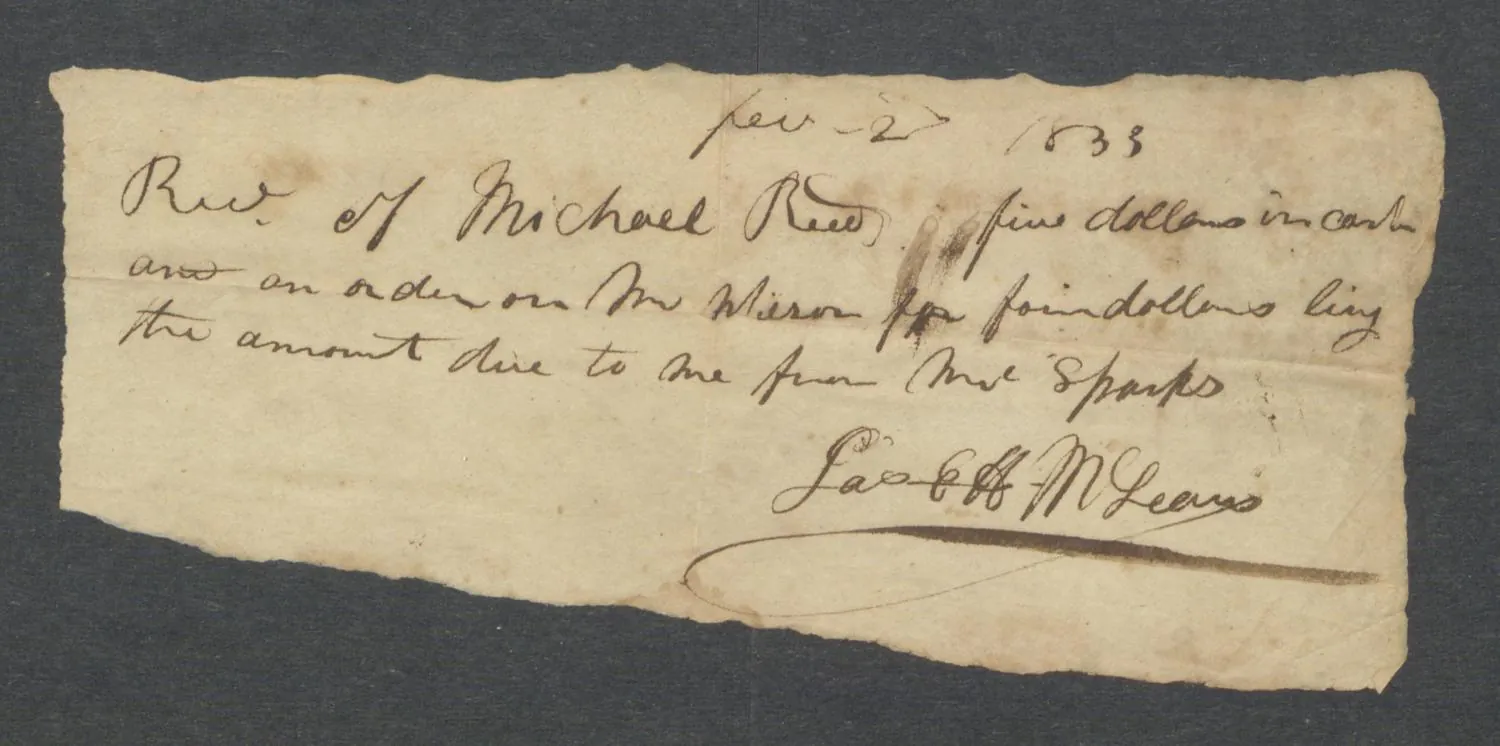 1833
Recd. of Michael Reed five dollars in cash
and an order on Mr Wieson for four dollars bing
the amount due to me from Mrs Sparks
Jas H McLeans